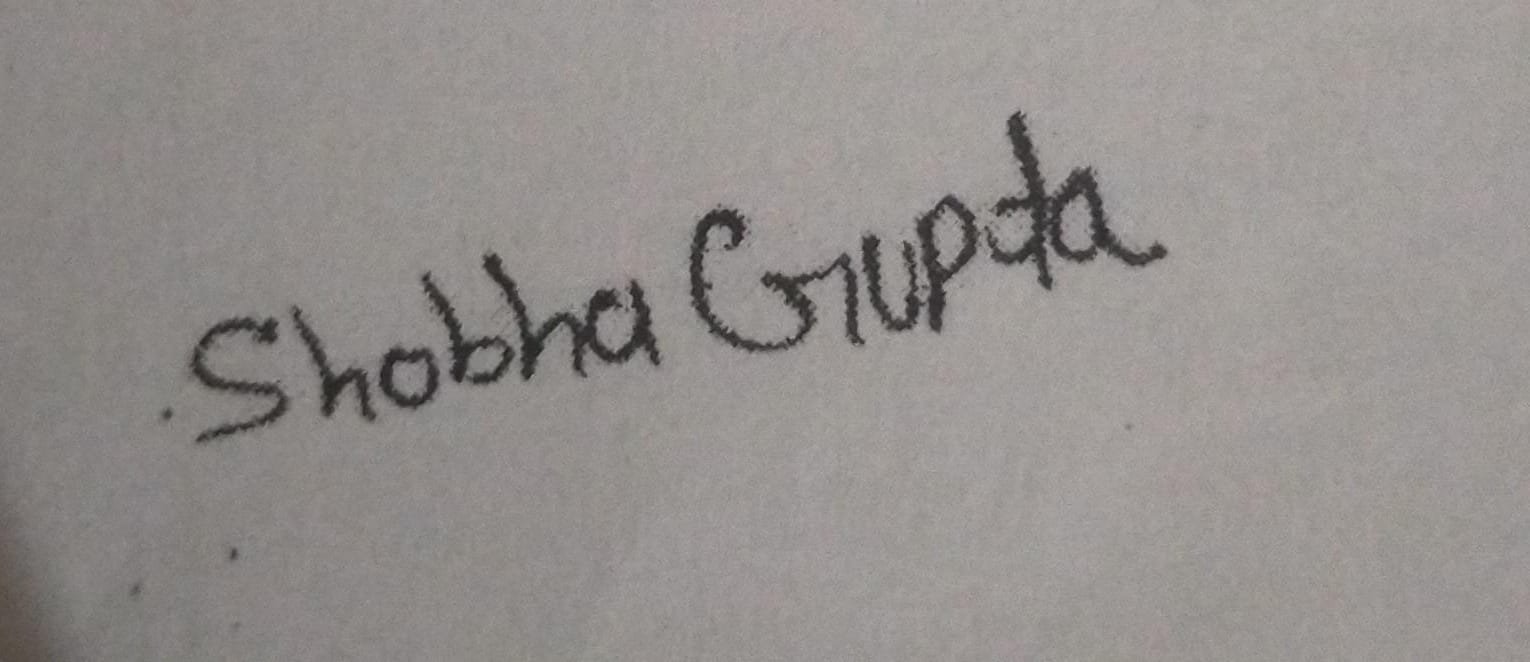 Shobha Gupta